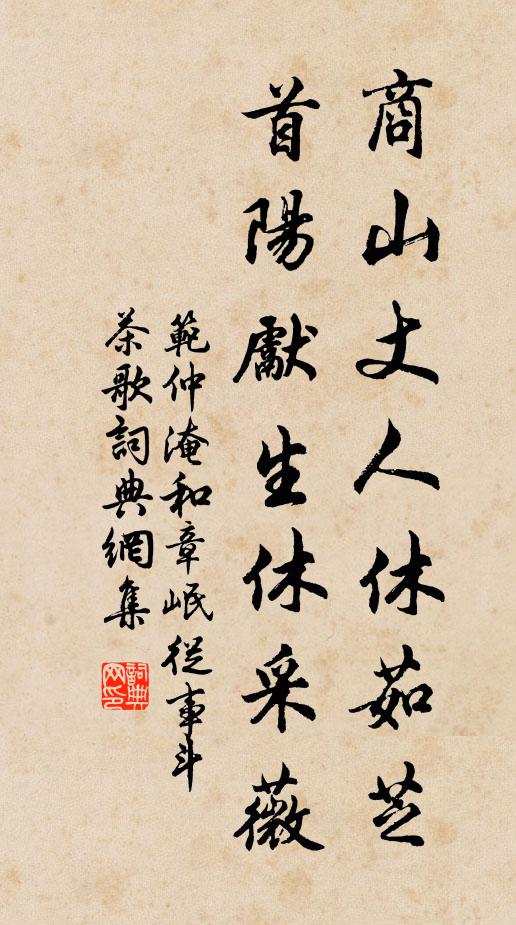 商山丈人休茹芝
首陽獻生休采薇
範仲淹和章岷從事斗
茶歌詞典網集
詞典
网印